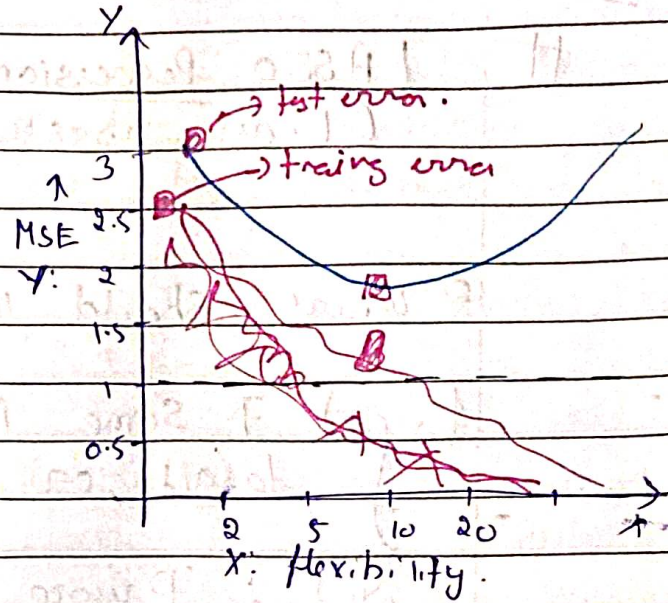 Y
test error.
3
traing error
2.5
MSE
Y: 2
1.5
1
0.5
2 5 10 20
X: flexibility.